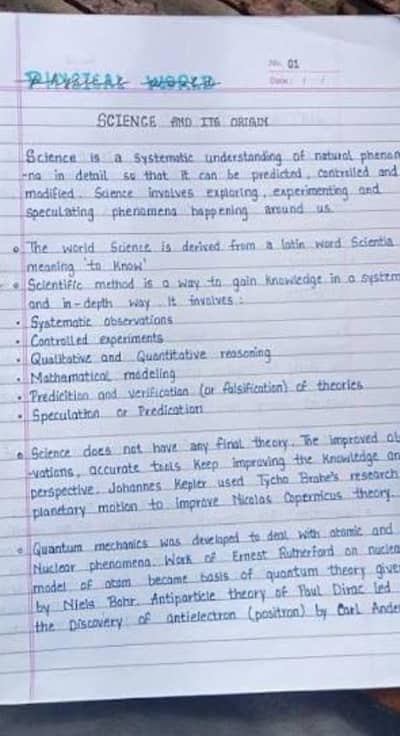 No. 01
Date: / /
PHYSICAL WORLD
SCIENCE AND ITS ORIGIN
Science is a systematic understanding of natural phenom
-na in detail so that it can be predicted, controlled and
modified. Science involves exploring, experimenting and
speculating phenomena happening around us.
The world Science is derived from a latin word Scientia
meaning 'to know'
Scientific method is a way to gain knowledge in a system
and in-depth way. It involves:
• Systematic observations
• Controlled experiments
• Qualitative and Quantitative reasoning
• Mathematical modeling
• Prediction and verification (or falsification) of theories
• Speculation or Predication
Science does not have any final theory. The improved ob
-vations, accurate tools keep improving the knowledge an
perspective. Johannes Kepler used Tycho Brahe's research
planetary motion to improve Nicolas Copernicus theory.
Quantum mechanics was developed to deal with atomic and
Nuclear phenomena. Work of Ernest Rutherford on nuclea
model of atom became basis of quantum theory give
by Niels Bohr. Antiparticle theory of Paul Dirac led
the Discovery of antielectron (positron) by Carl Ander